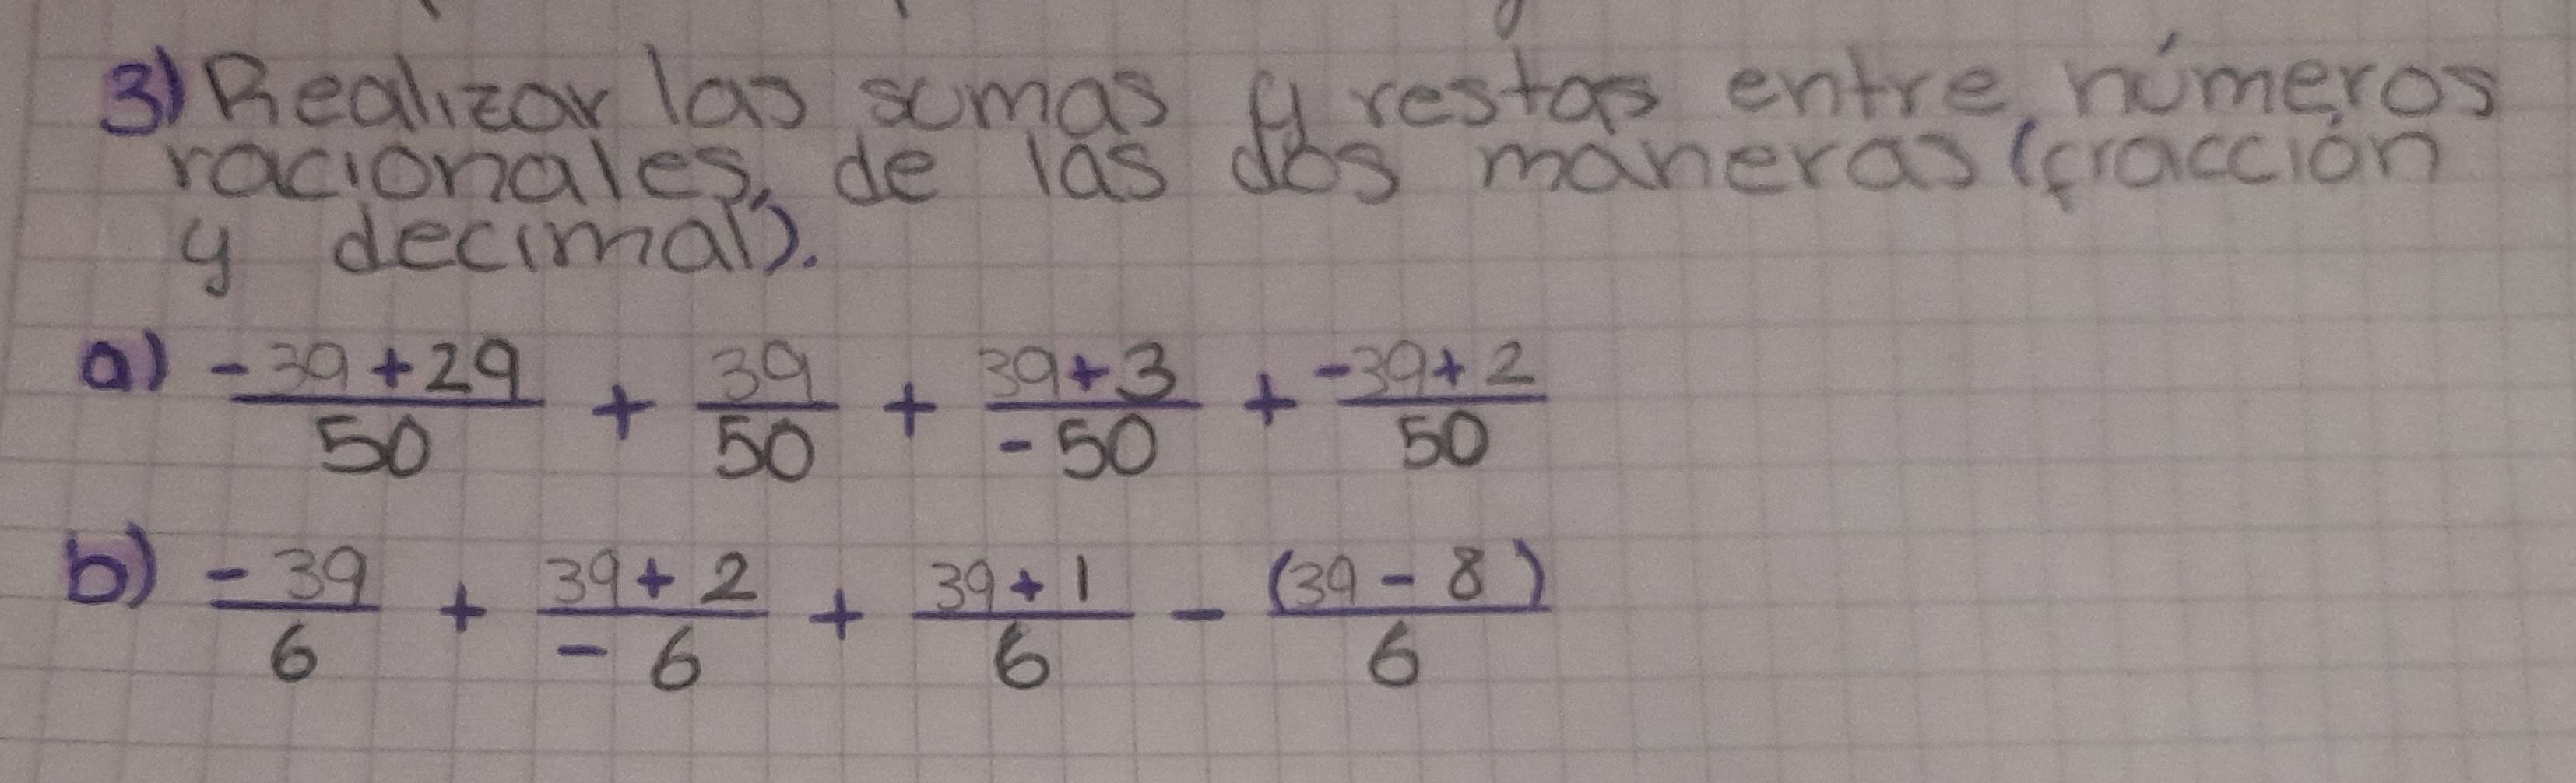 3) Realizar las sumas y restas entre números
racionales, de las dos maneras (fracción
y decimal).
a) -39+29/50 + 39/50 + 39+3/-50 + -39+2/50
b) -39/6 + 39+2/-6 + 39+1/6 - (39-8)/6